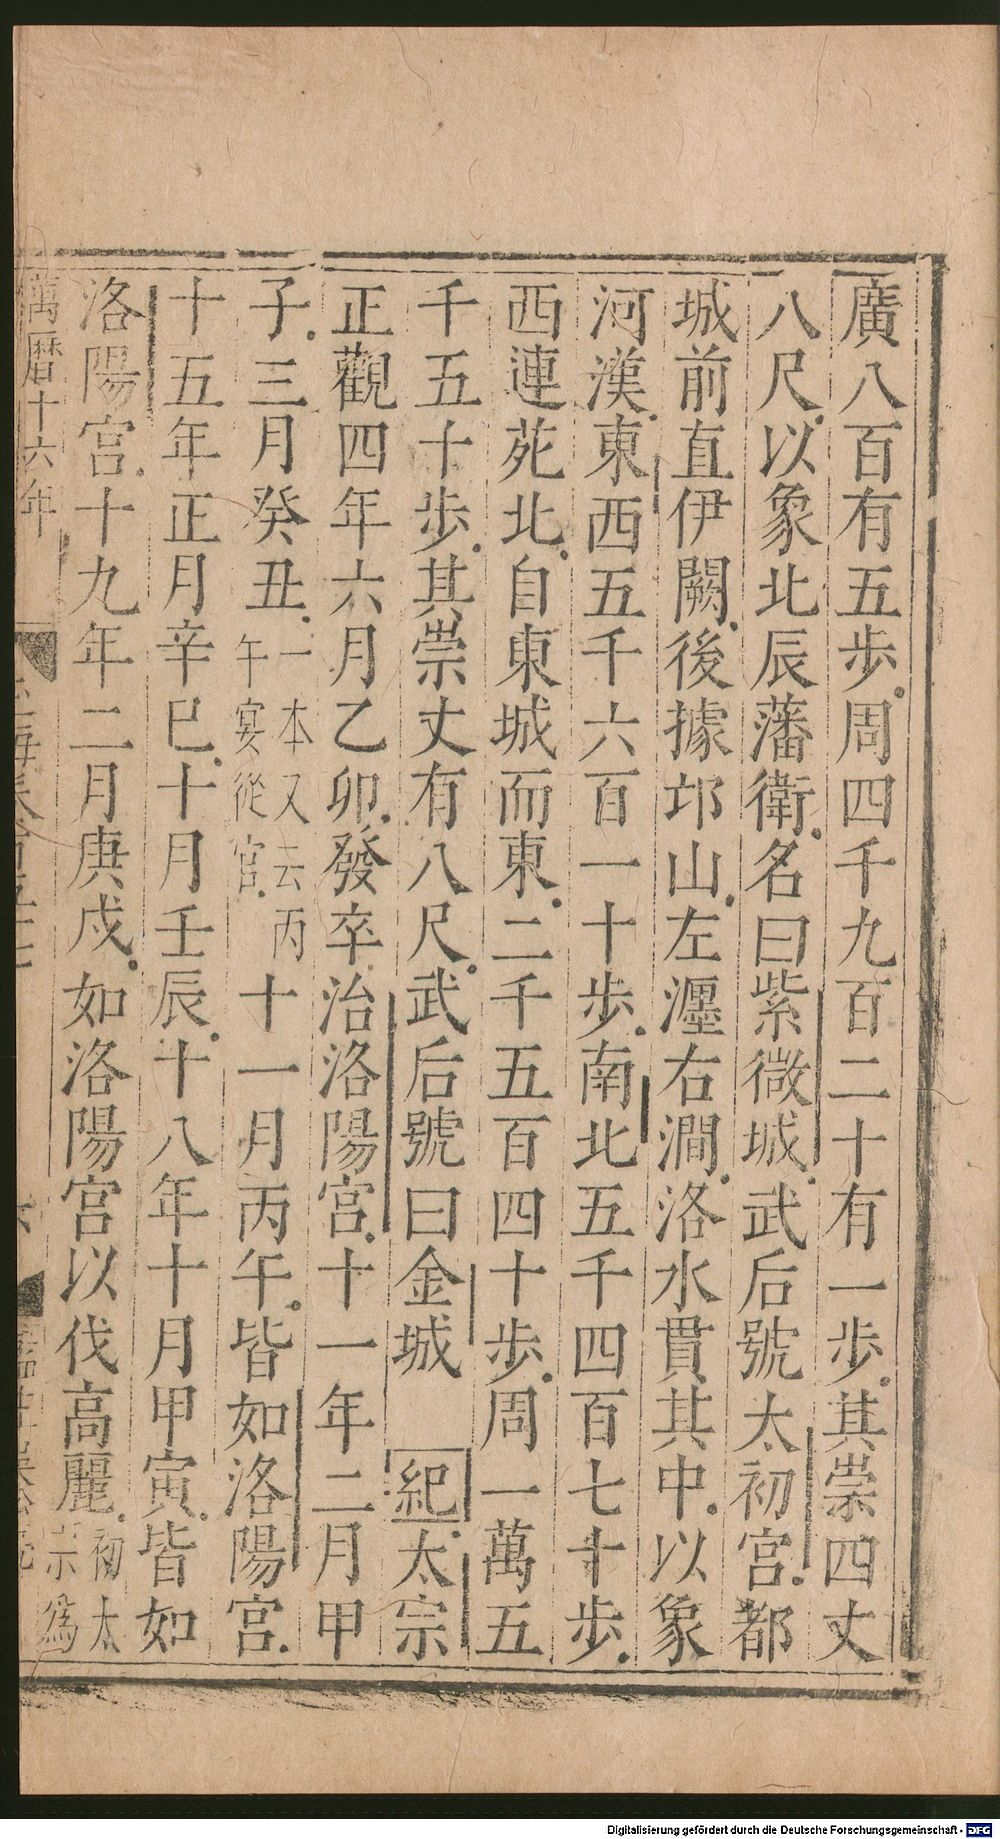 廣八百有五步周四千九百二十有一步其崇四丈
八尺以象北辰藩衛名曰紫微城武后號太初宮都
城前直伊闕後據邙山左瀍右澗洛水貫其中以象
河漢東西五千六百一十步南北五千四百七十步
西連苑北自東城而東二千五百四十步周一萬五
千五十步其崇丈有八尺武后號曰金城 紀太宗
正觀四年六月乙卯發卒治洛陽宮十一年二月甲
子三月癸丑一本又云丙午宴從官十一月丙午皆如洛陽宮
十五年正月辛巳十月壬辰十八年十月甲寅皆如
洛陽宮十九年二月庚戍如洛陽宮以伐高麗初太宗為
萬曆十六年
Digitalisierung gefördert durch die Deutsche Forschungsgemeinschaft - DFG